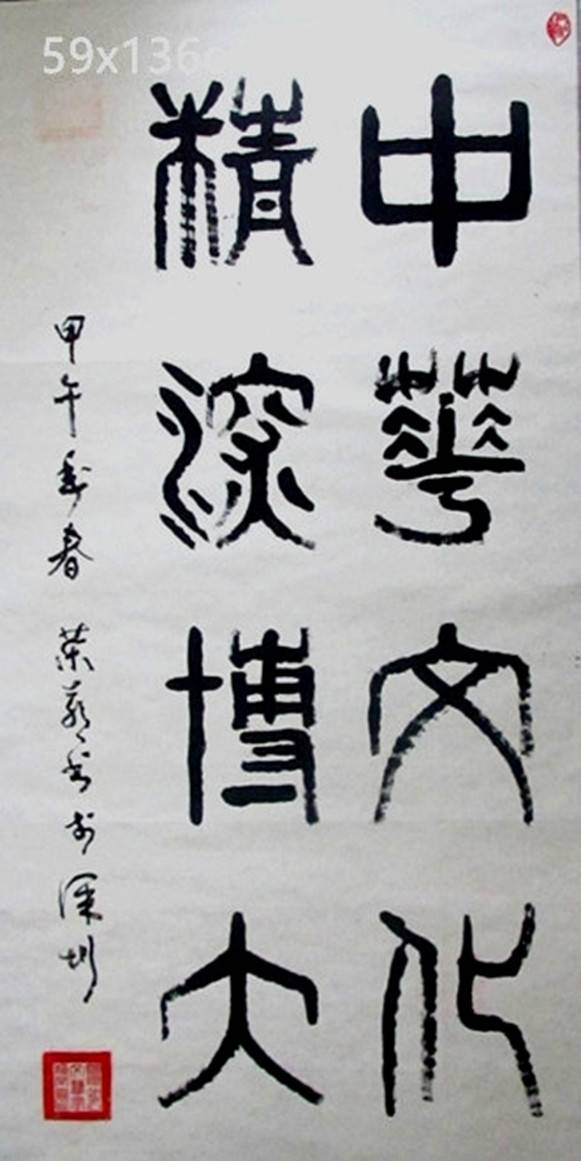 中華文化
精深博大
甲午年春 荣英书于深圳
59x136